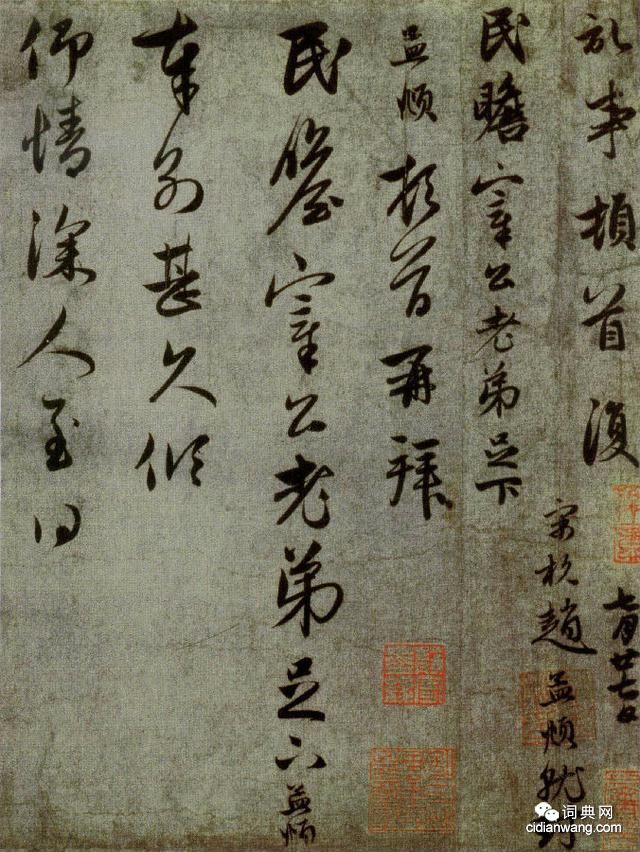 記事頓首復
七月廿七日
民瞻宰公老弟足下
趙孟頫
孟頫頓首再拜
民瞻宰公老弟足下孟頫
奉別甚久傾
仰情深人至得
词典网
cidianwang.com